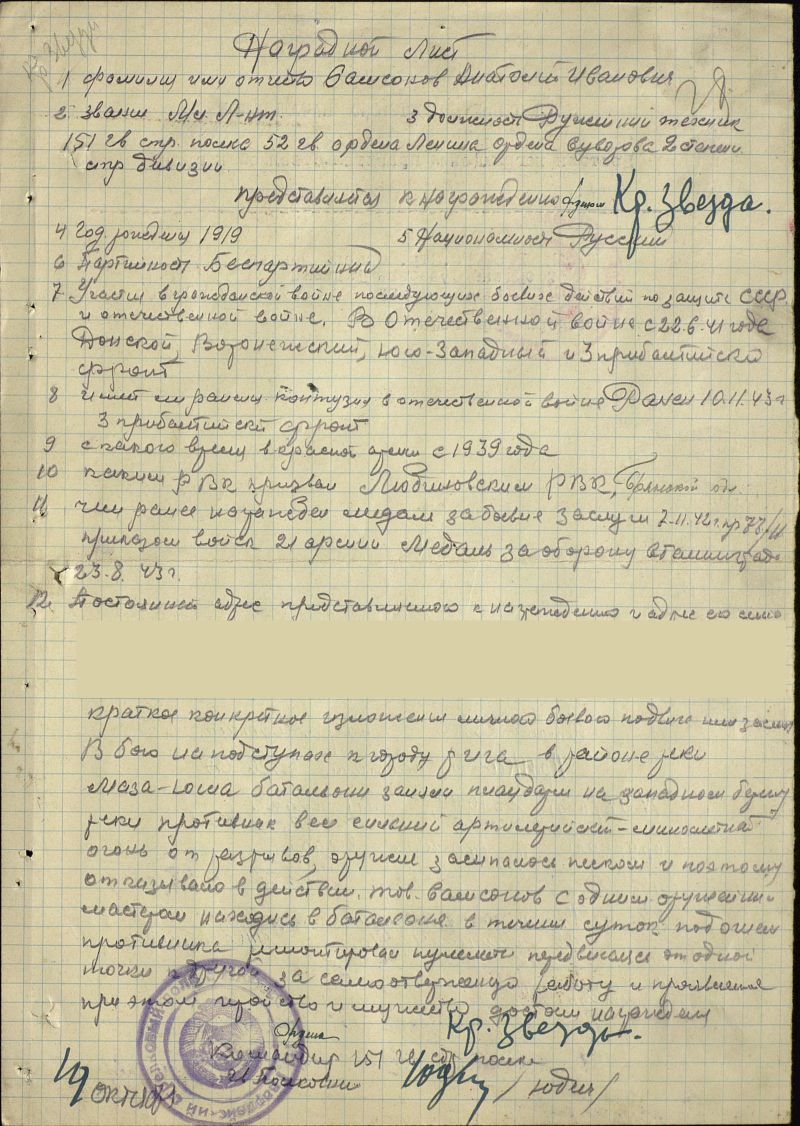 Кр. Звезды
Наградной Лист
1 фамилия имя отчество Самсонов Анатолий Иванович
2 Звание Мл Л-нт. 3 Должность Оружейный техник
151 гв стр. полка 52 гв ордена Ленина ордена Суворова 2 степени
стр дивизии.
представляется к награждению орденом Кр. Звезда.
4 Год рождения 1919 5 Национальность Русский
6 Партийность Беспартийный
7 Участие в гражданской войне последующих боевых действий по защите СССР
и отечественной войне. В Отечественной войне с 22.6.41 года
Донской, Воронежский, Юго-Западный и 3 прибалтийский
фронт
8 имеет ли ранения контузии в отечественной войне Ранен 10.11.43 г
3 прибалтийский фронт
9 с какого время в красной армии с 1939 года
10 каким РВК призван РВК, Брянской обл.
11 чем ранее награжден медаль за боевые заслуги 7.11.42 г. пр
приказом войск 21 армии Медаль за оборону Сталинграда
23.8.43 г.
12. Постоянный адрес представляемого к награждению и адрес его семьи
краткое конкретное изложение личного боевого подвига или заслуг
В бою на подступах к городу Рига в районе реки
Маза-Югла батальоны заняли плацдарм на западном берегу
реки противник вел сильный артилерийский-минометный
огонь от разрывов, оружие засыпалось песком и поэтому
отказывало в действии. тов. Самсонов с одним оружейным
мастером находясь в батальоне в течении суток под огнем
противника ремонтировал пулеметы передвигаясь от одной
точки к другой за самоотверженную работу и проявленные
при этом геройство и мужество достоин награждения
Ордена Кр. Звезды.
Командир 151 гв стр полка
гв Полковник /Юдич/
19 октября